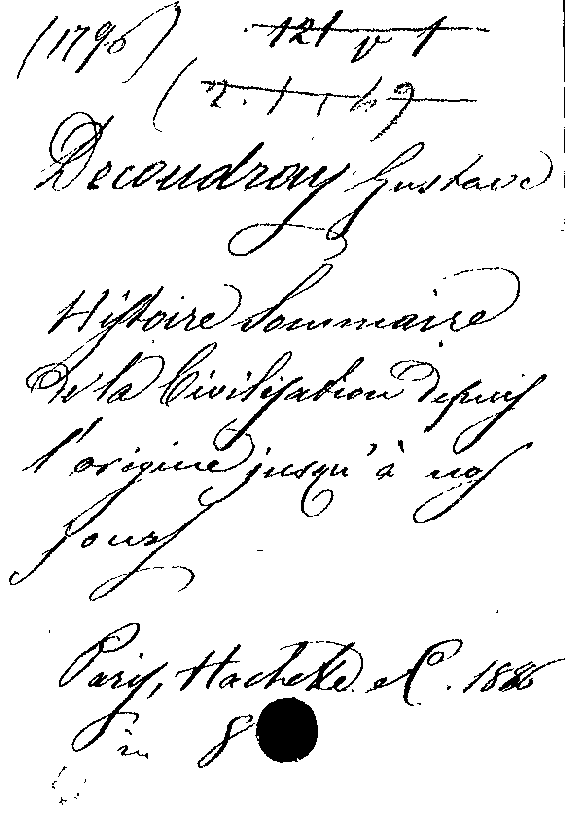 (1796) 121 v 1
(2.1.69)
Decoudray Gustave
Histoire Sommaire
de la Civilisation depuis
l'origine jusqu'à nos
jours
Paris, Hachette et C. 1886
in 8